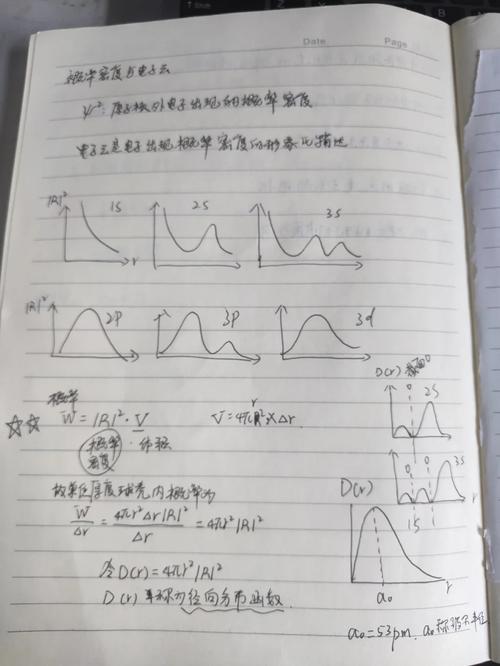 Date    Page
概率密度与电子云
ψ²: 原子核外电子出现的概率密度
电子云是电子出现概率密度的形象化描述
|R|² 1S r 2S 3S
|R|² 2P 3P 3d
概率
☆☆ W = |R|² · V    V = 4πr² × Δr
概率密度 · 体积
D(r) 截面0
0 2S
0 0 3S
1S 1
故单位厚度球壳内概率为
W/Δr = 4πr²Δr|R|²/Δr = 4πr²|R|²
D(r)
a₀ r
令D(r) = 4πr²|R|²
D(r) 称为径向分布函数.
a₀ = 53pm. a₀